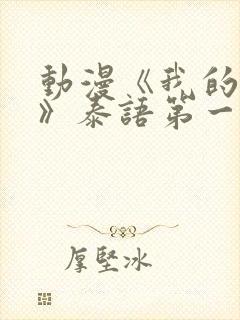 動漫《我的
》泰語第一
厚堅冰